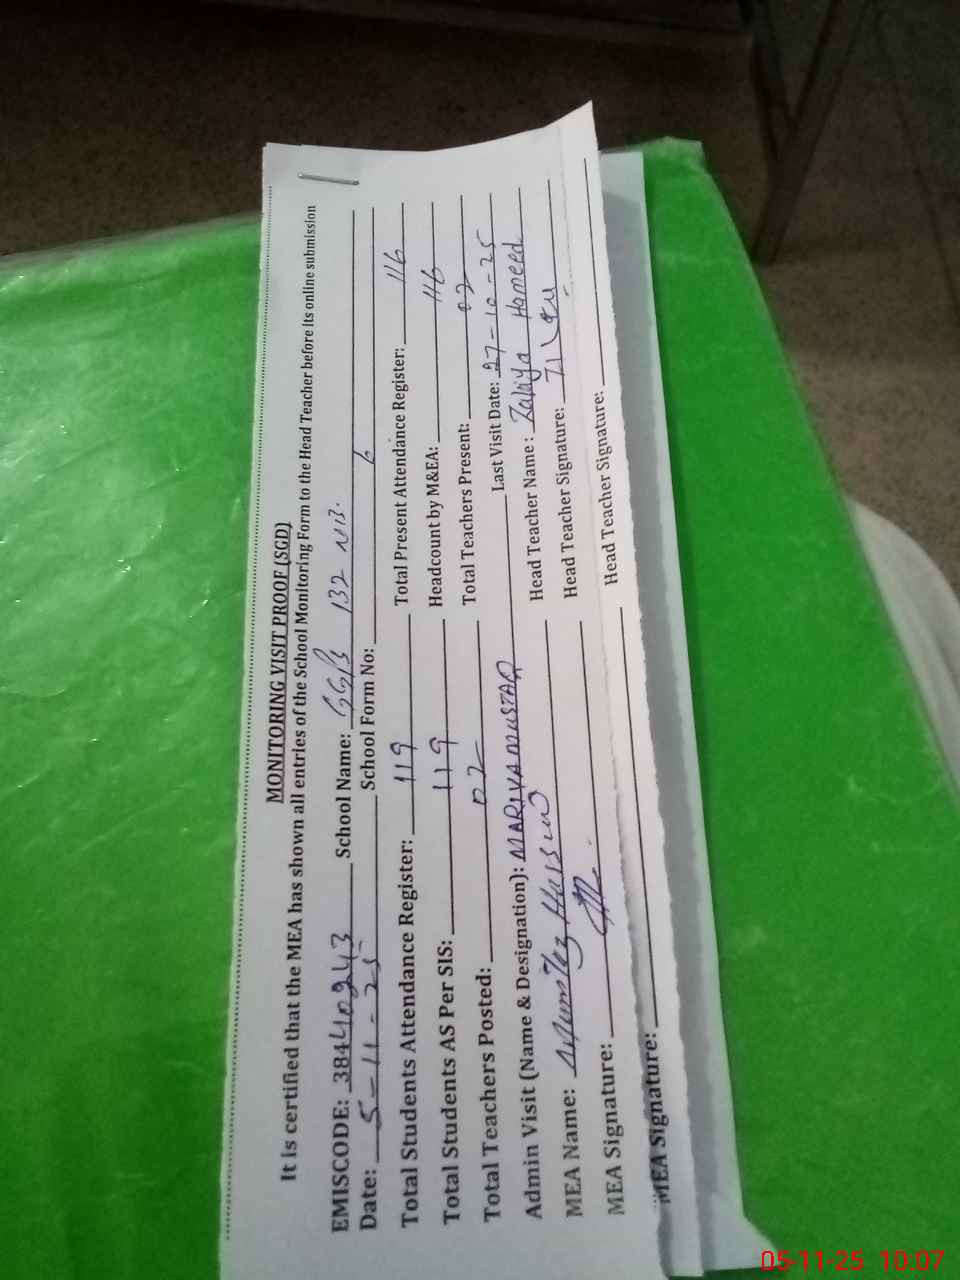 MONITORING VISIT PROOF (SGD)
It is certified that the MEA has shown all entries of the School Monitoring Form to the Head Teacher before its online submission
EMISCODE: 38440243 School Name: GGPS 132 NB.
Date: 5-11-25 School Form No: 6
Total Students Attendance Register: 119 Total Present Attendance Register: 116
Total Students AS Per SIS: 119 Headcount by M&EA: 116
Total Teachers Posted: 02 Total Teachers Present: 02
Admin Visit (Name & Designation): MARIYA MUSTAQ Last Visit Date: 27-10-25
MEA Name: Hassan Head Teacher Name: Hameed
MEA Signature: Head Teacher Signature:
MEA Signature: Head Teacher Signature:
05-11-25 10:07